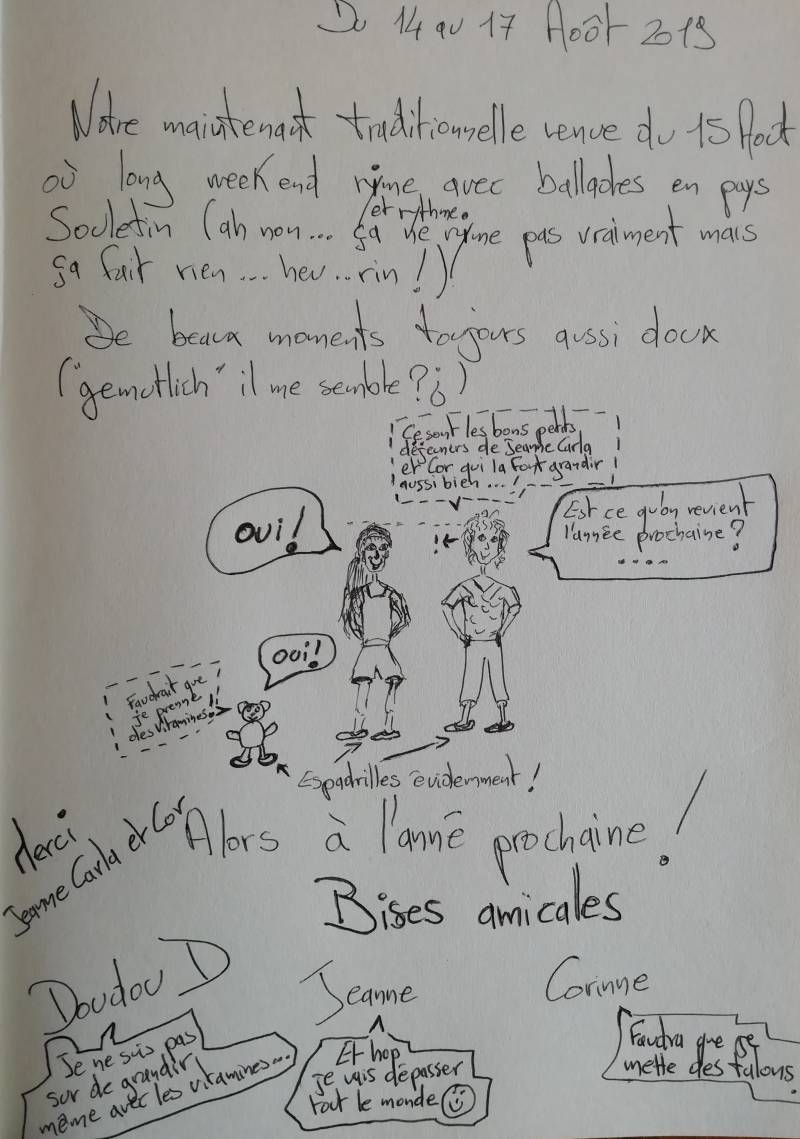 Du 14 au 17 Août 2019
Notre maintenant traditionnelle venue du 15 Août
où long week end ryme avec ballades en pays
Souletin (ah non... ça ne ryme pas vraiment mais
et rythme.
ça fait rien ... heu .. rin !)!
De beaux moments toujours aussi doux
("gemutlich" il me semble ?¿)
Ce sont les bons petits
déjeuners de Jeanne Carla
et Cor qui la font grandir
aussi bien ... !
OUI !
! ←
Est ce qu'on revient
l'année prochaine ?
....
OUI !
Faudrait que
je prenne
des vitamines !!
Espadrilles évidemment !
Merci
Jeanne Carla et Cor
Alors à l'anné prochaine !
Bises amicales
Doudou D
Jeanne
Corinne
Je ne suis pas
sur de grandir
même avec les vitamines...
Et hop
je vais dépasser
tout le monde
Faudra que je
mette des talons.